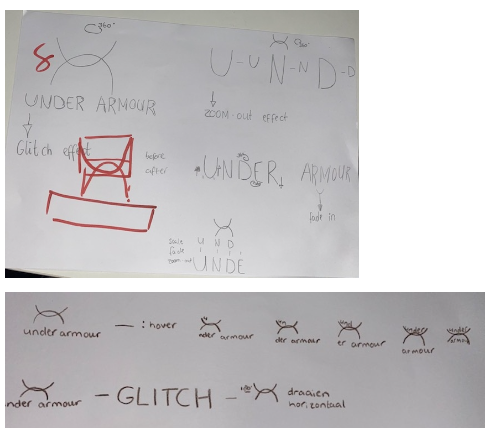 360°
8
UNDER ARMOUR
Glitch effect
before
after
U-U N-N D-D
ZOOM-out effect
UNDER ARMOUR
fade in
scale
fade
zoom-out
U N D
UNDE
under armour — : hover
nder armour
der armour
er armour
armour
under
nder armour — GLITCH — draaien
horizontaal